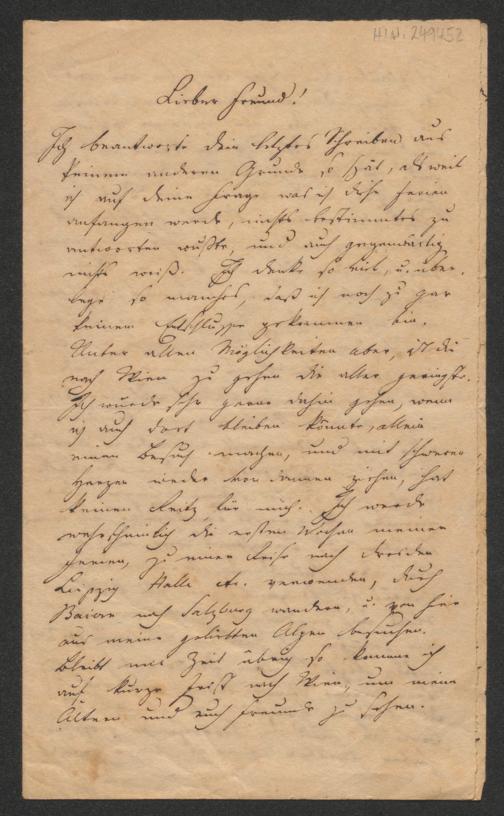 H.I.N. 249452
Lieber Freund!
Ich beantworte dein letztes Schreiben aus
keinem anderen Grunde so spät, als weil
ich auf deine Frage was ich diese Ferien
anfangen werde, nichts bestimmtes zu
antworten wußte, und auch gegenwärtig
nichts weiß. Ich denke so viel, u. über-
lege so manches, daß ich noch zu gar
keinem Entschlusse gekommen bin.
Unter allen Möglichkeiten aber, ist die
nach Wien zu gehen die aller geringste.
Ich würde sehr gerne dahin gehen, wenn
ich auch dort bleiben könnte, allein
einen Besuch machen, und mit schweren
Herzen wieder von dannen ziehen, hat
keinen Reitz für mich. Ich werde
wahrscheinlich die ersten Wochen meiner
Ferien, zu einer Reise nach Dresden
Leipzig Halle etc. verwenden, durch
Baiern nach Salzburg wandern, u. von hier
aus meine geliebten Alpen besuchen.
Bleibt mir Zeit übrig so komme ich
auf kurze Frist nach Wien, um meine
Ältern und euch Freunde zu sehen.